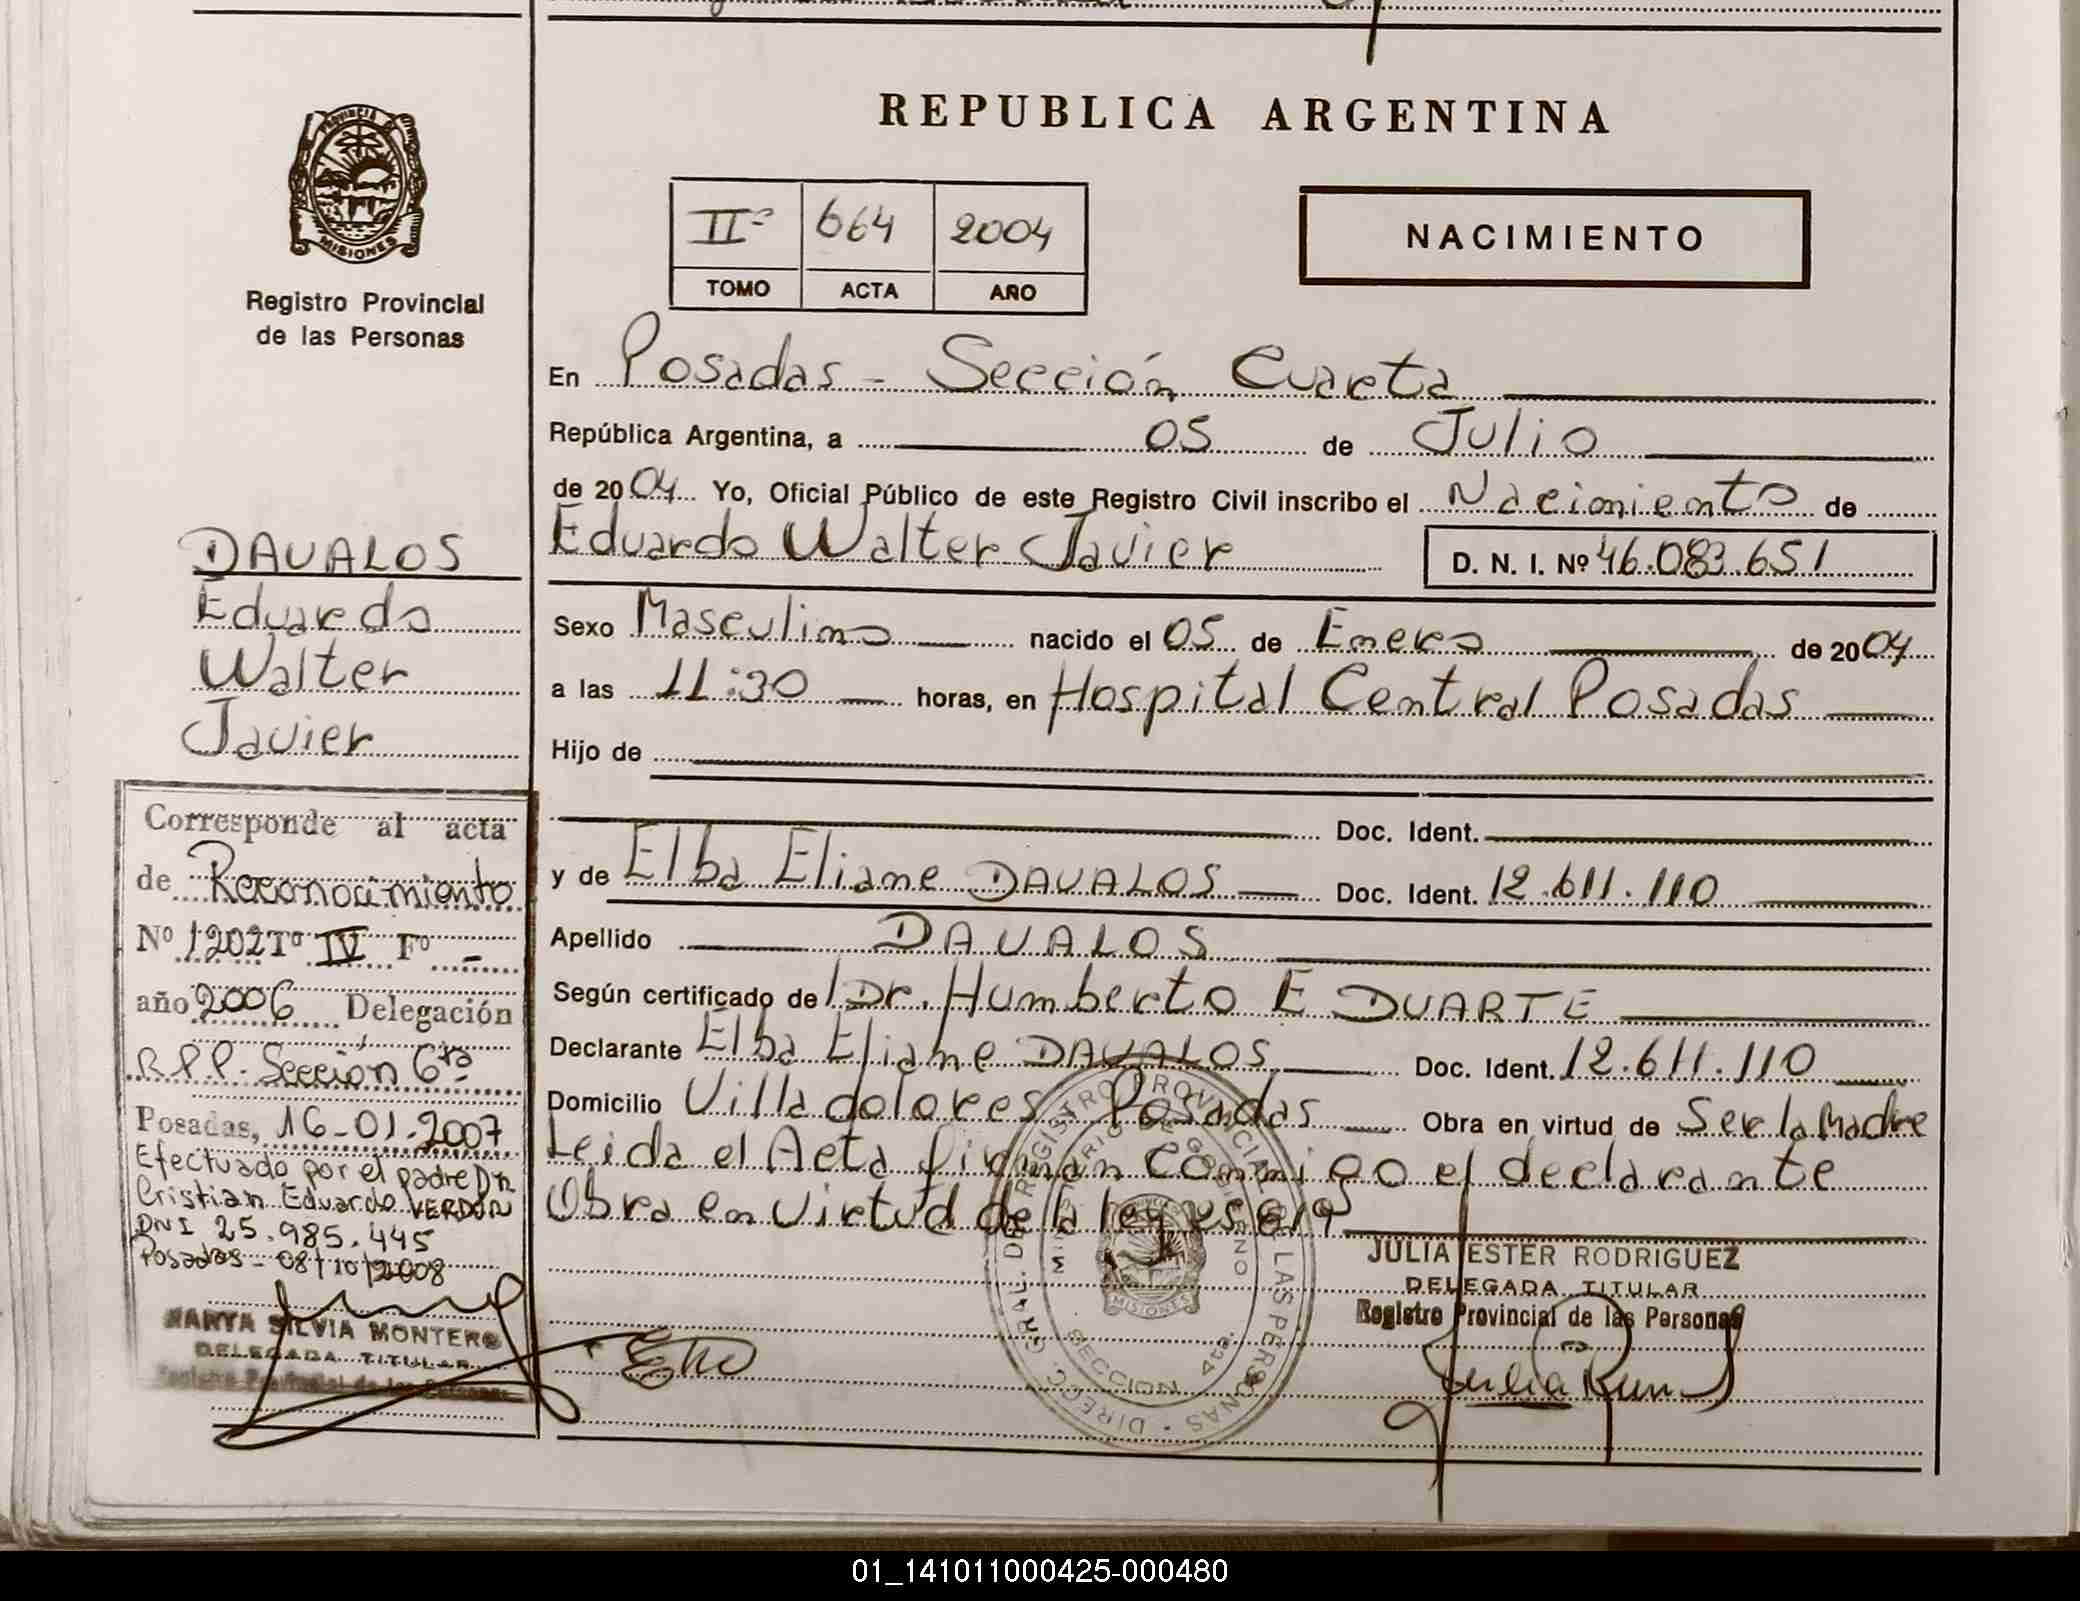 REPUBLICA ARGENTINA
PROVINCIA DE
MISIONES
Registro Provincial
de las Personas
IIº 664 2004
TOMO ACTA AÑO
NACIMIENTO
En Posadas - Sección Cuarta
República Argentina, a 05 de Julio
de 2004 Yo, Oficial Público de este Registro Civil inscribo el Nacimiento de
Eduardo Walter Javier D. N. I. Nº 46.083.651
Sexo Masculino nacido el 05 de Enero de 2004
a las 11:30 horas, en Hospital Central Posadas
Hijo de
Doc. Ident.
y de Elba Eliane DAVALOS Doc. Ident. 12.611.110
Apellido DAVALOS
Según certificado de Dr. Humberto E DUARTE
Declarante Elba Eliane DAVALOS Doc. Ident. 12.611.110
Domicilio Villa dolores Posadas Obra en virtud de Ser la Madre
Leida el Acta firman conmigo el declarante
Obra en virtud de la ley
JULIA ESTER RODRIGUEZ
DELEGADA TITULAR
Registro Provincial de las Personas
DIRECC. GRAL. DEL REGISTRO PROVINCIAL DE LAS PERSONAS
MINISTERIO DE GOBIERNO
MISIONES
SECCION 4ta.
DAVALOS
Eduardo
Walter
Javier
Corresponde al acta
de Reconocimiento
Nº 1202 Tº IV Fº -
año 2006 Delegación
R.P.P. Sección 6ta
Posadas, 16-01-2007
Efectuado por el padre Dn
Cristian Eduardo VERDUN
DNI 25.985.445
Posadas - 08/10/2008
MARTA SILVIA MONTERO
DELEGADA TITULAR
Registro Provincial de las Personas
01_141011000425-000480